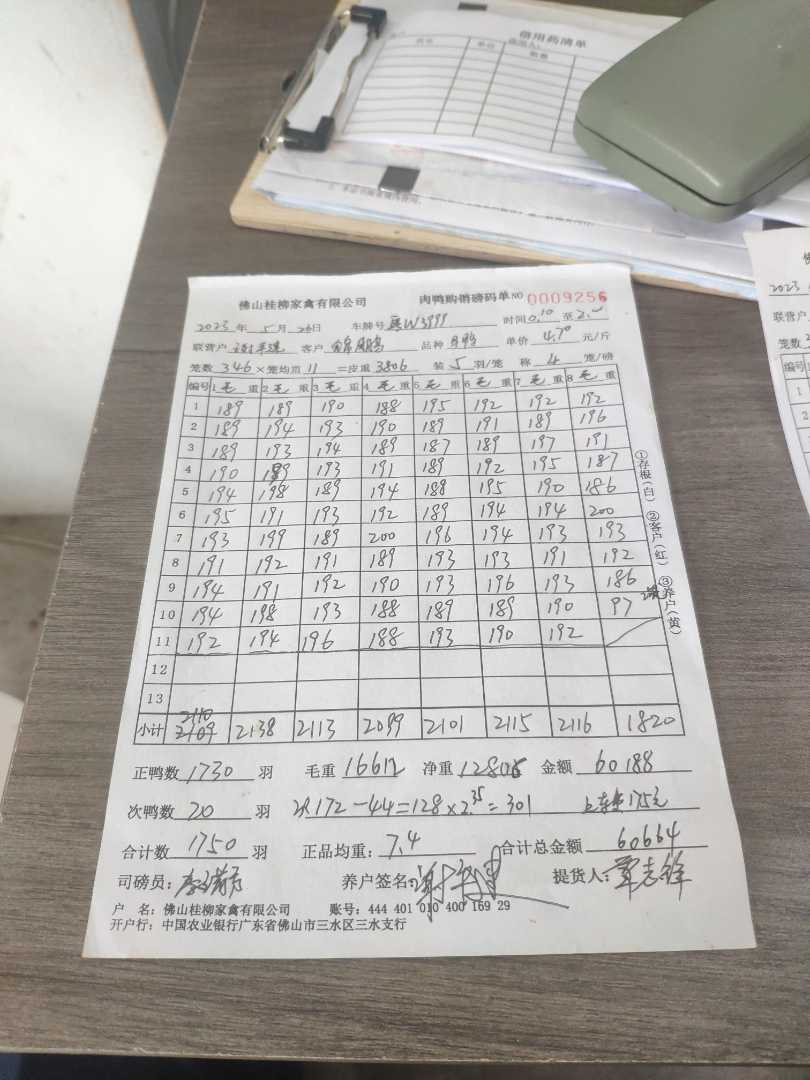 借用药清单
单位
数量
佛山桂柳家禽有限公司 肉鸭购销磅码单 NO 0009256
2023年5月26日 车牌号 W3999 时间0.10至2.00
联营户 客户 品种 单价4.70元/斤
笼数346×笼均重11=皮重3806 装5羽/笼 称4笼/磅
编号 1毛重 2毛重 3毛重 4毛重 5毛重 6毛重 7毛重 8毛重
1 189 189 190 188 195 192 192 192
2 189 194 193 190 189 191 189 196
3 189 193 194 189 187 189 197 191
4 190 189 193 191 189 192 195 187
5 194 198 189 194 188 195 190 186
6 195 191 193 192 189 194 194 200
7 193 199 189 200 196 194 193 193
8 191 192 191 189 193 193 191 192
9 194 191 192 190 193 196 193 186
10 194 198 193 188 189 189 190 97
11 192 194 196 188 193 190 192
12
13
2110
小计 2109 2138 2113 2099 2101 2115 2116 1820
①存根(白) ②客户(红) ③养户(黄)
正鸭数1730羽 毛重16612 净重12806 金额60188
次鸭数20羽 172-44=128×2.35=301 175元
合计数1750羽 正品均重:7.4 合计总金额60664
司磅员: 养户签名: 提货人:覃志锋
户 名:佛山桂柳家禽有限公司 账号:444 401 010 400 169 29
开户行:中国农业银行广东省佛山市三水区三水支行
2023
联营户
笼数
编号
1
2